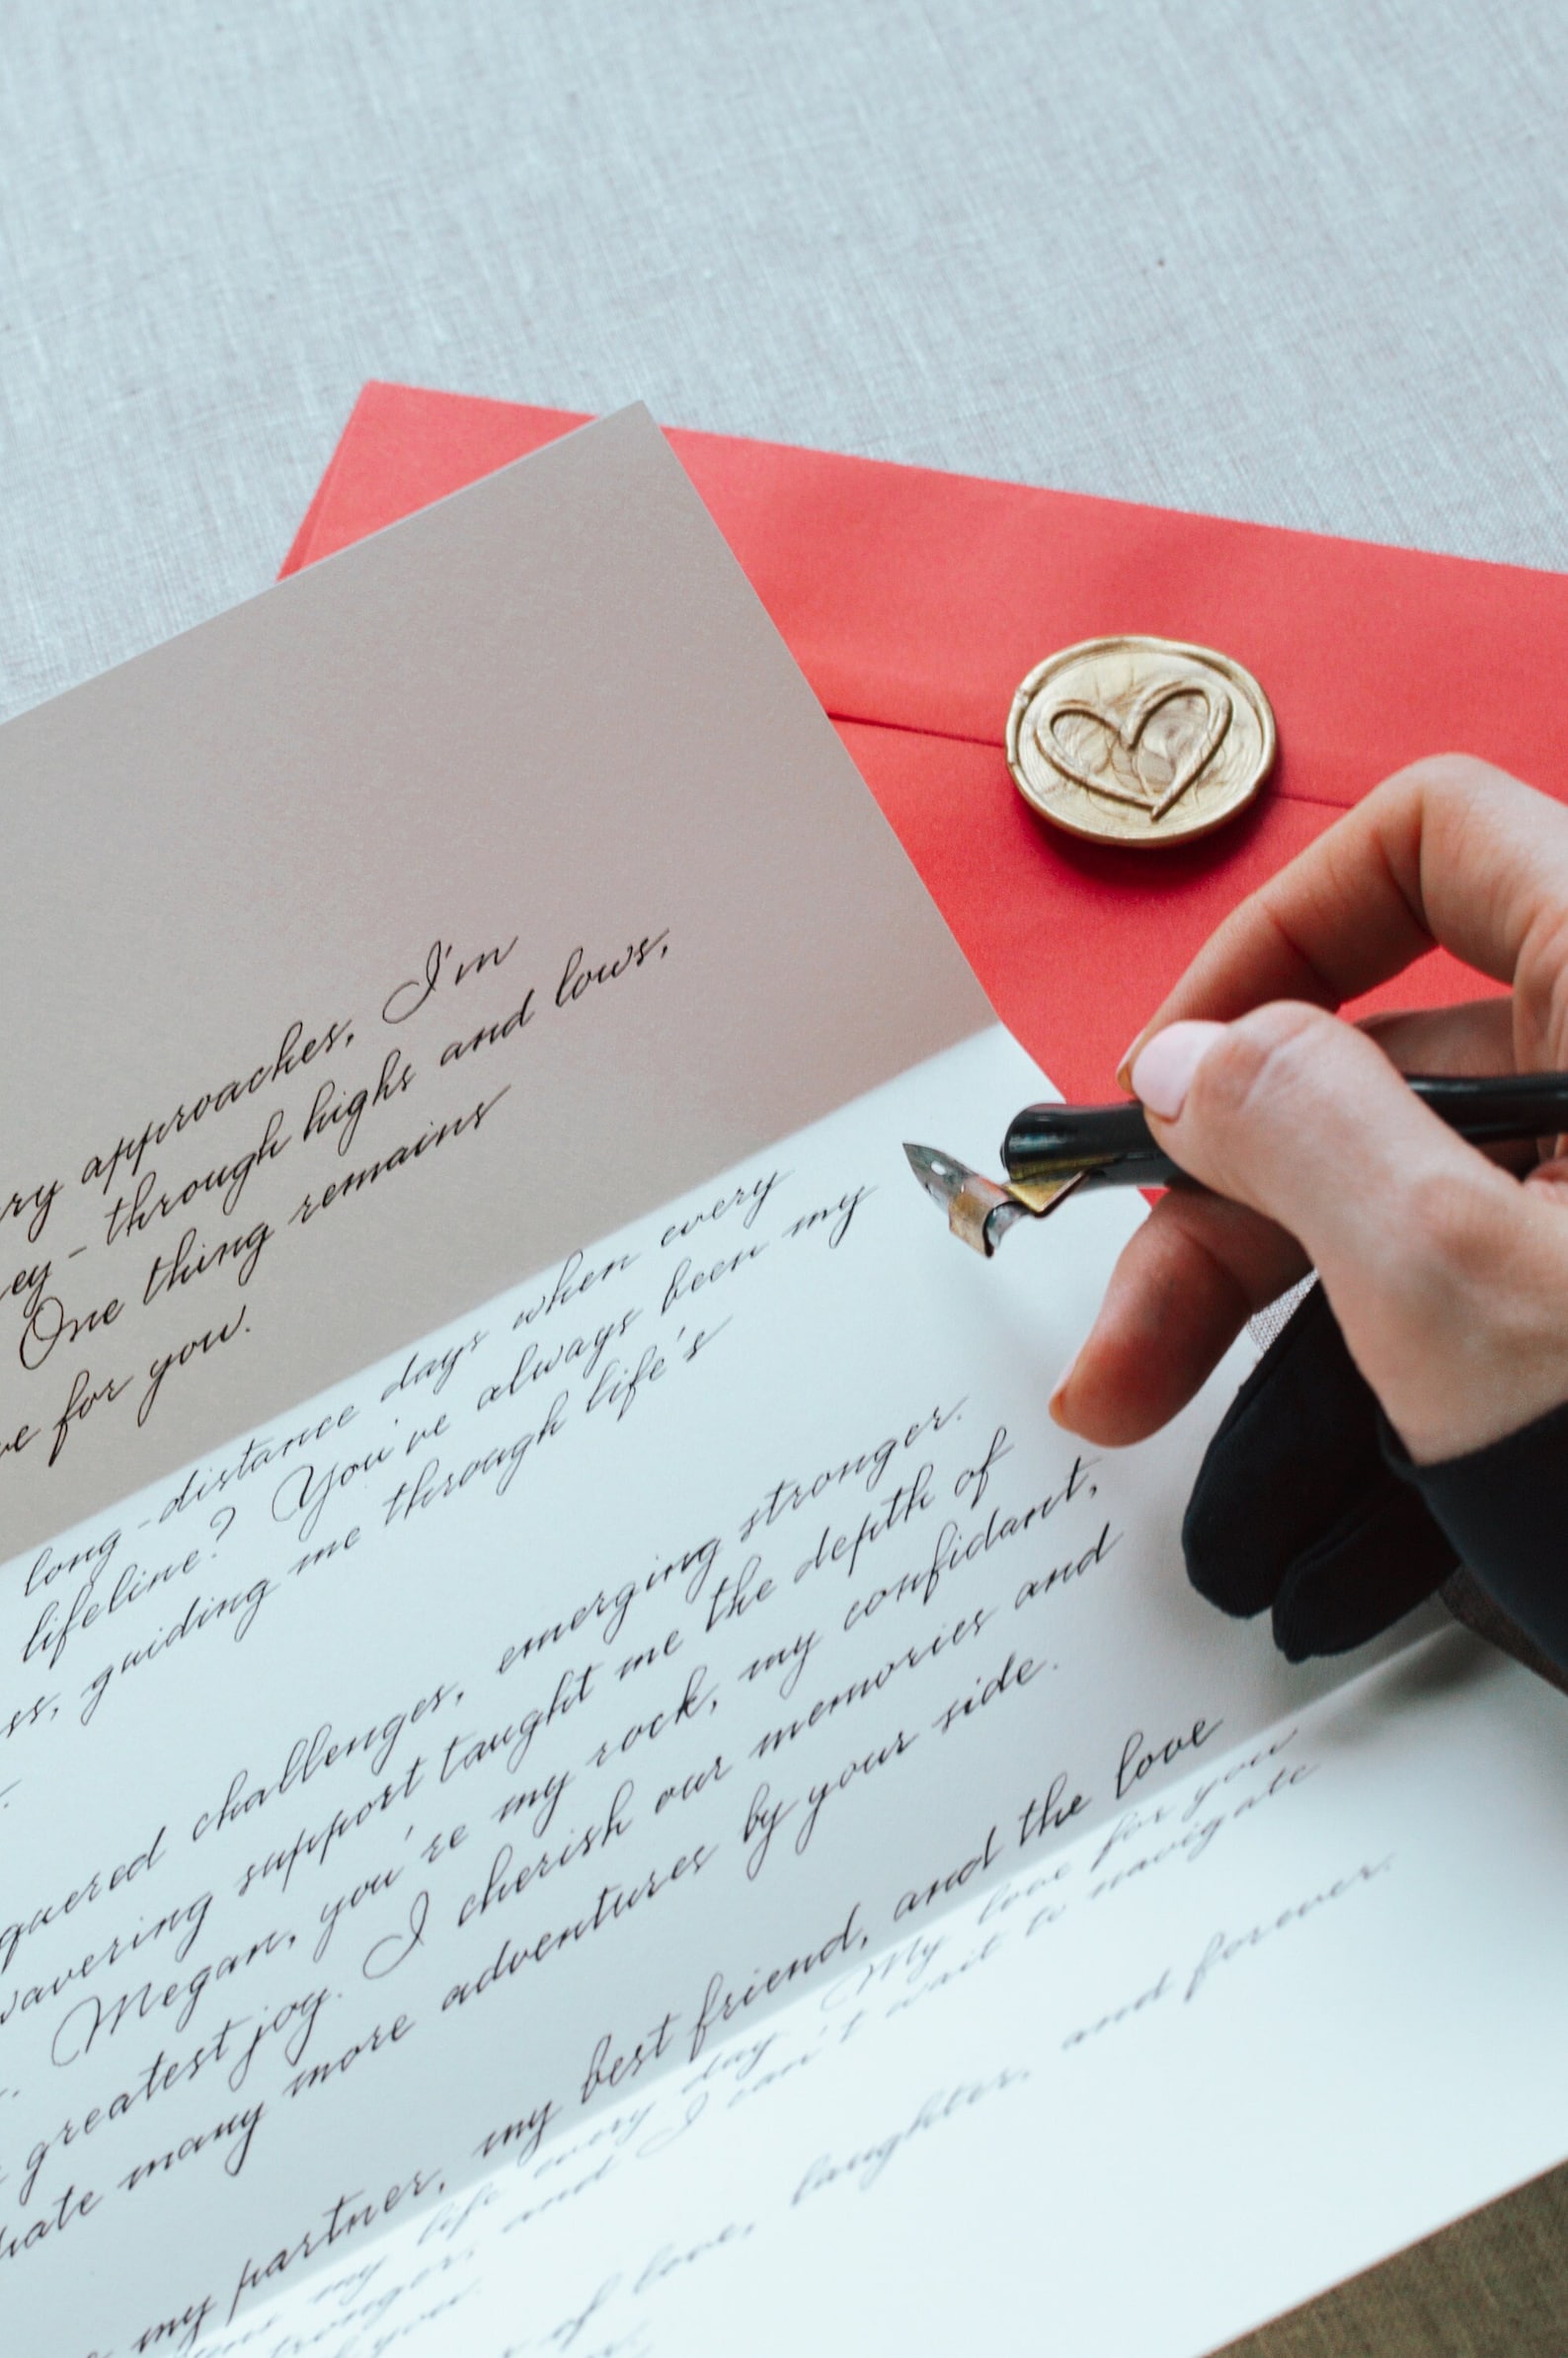 approaches, I'm
through highs and lows,
One thing remains
for you.
long-distance days when every
lifeline? You've always been my
guiding me through life's
challenges, emerging stronger.
support taught me the depth of
Megan, you're my rock, my confidant,
greatest joy. I cherish our memories and
many more adventures by your side.
my partner, my best friend, and the love
my life every day My love for you
stronger, and I can't wait to navigate
you
of love, laughter, and forever.